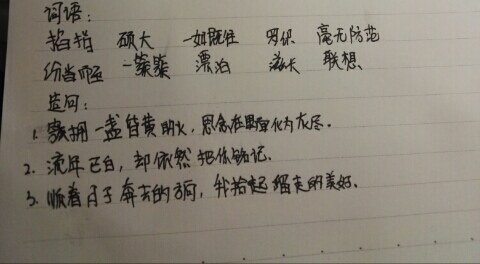 词语:
掐指 硕大 一如既往 毫无防范
一蓑蓑 漂泊 滋长 联想
造句:
1. 一盏昏黄的火,思念在里窜化为灰尽.
2. 流年已白,却依然把你铭记.
3. 顺着日子奔去的方向,我拾起溜走的美好.